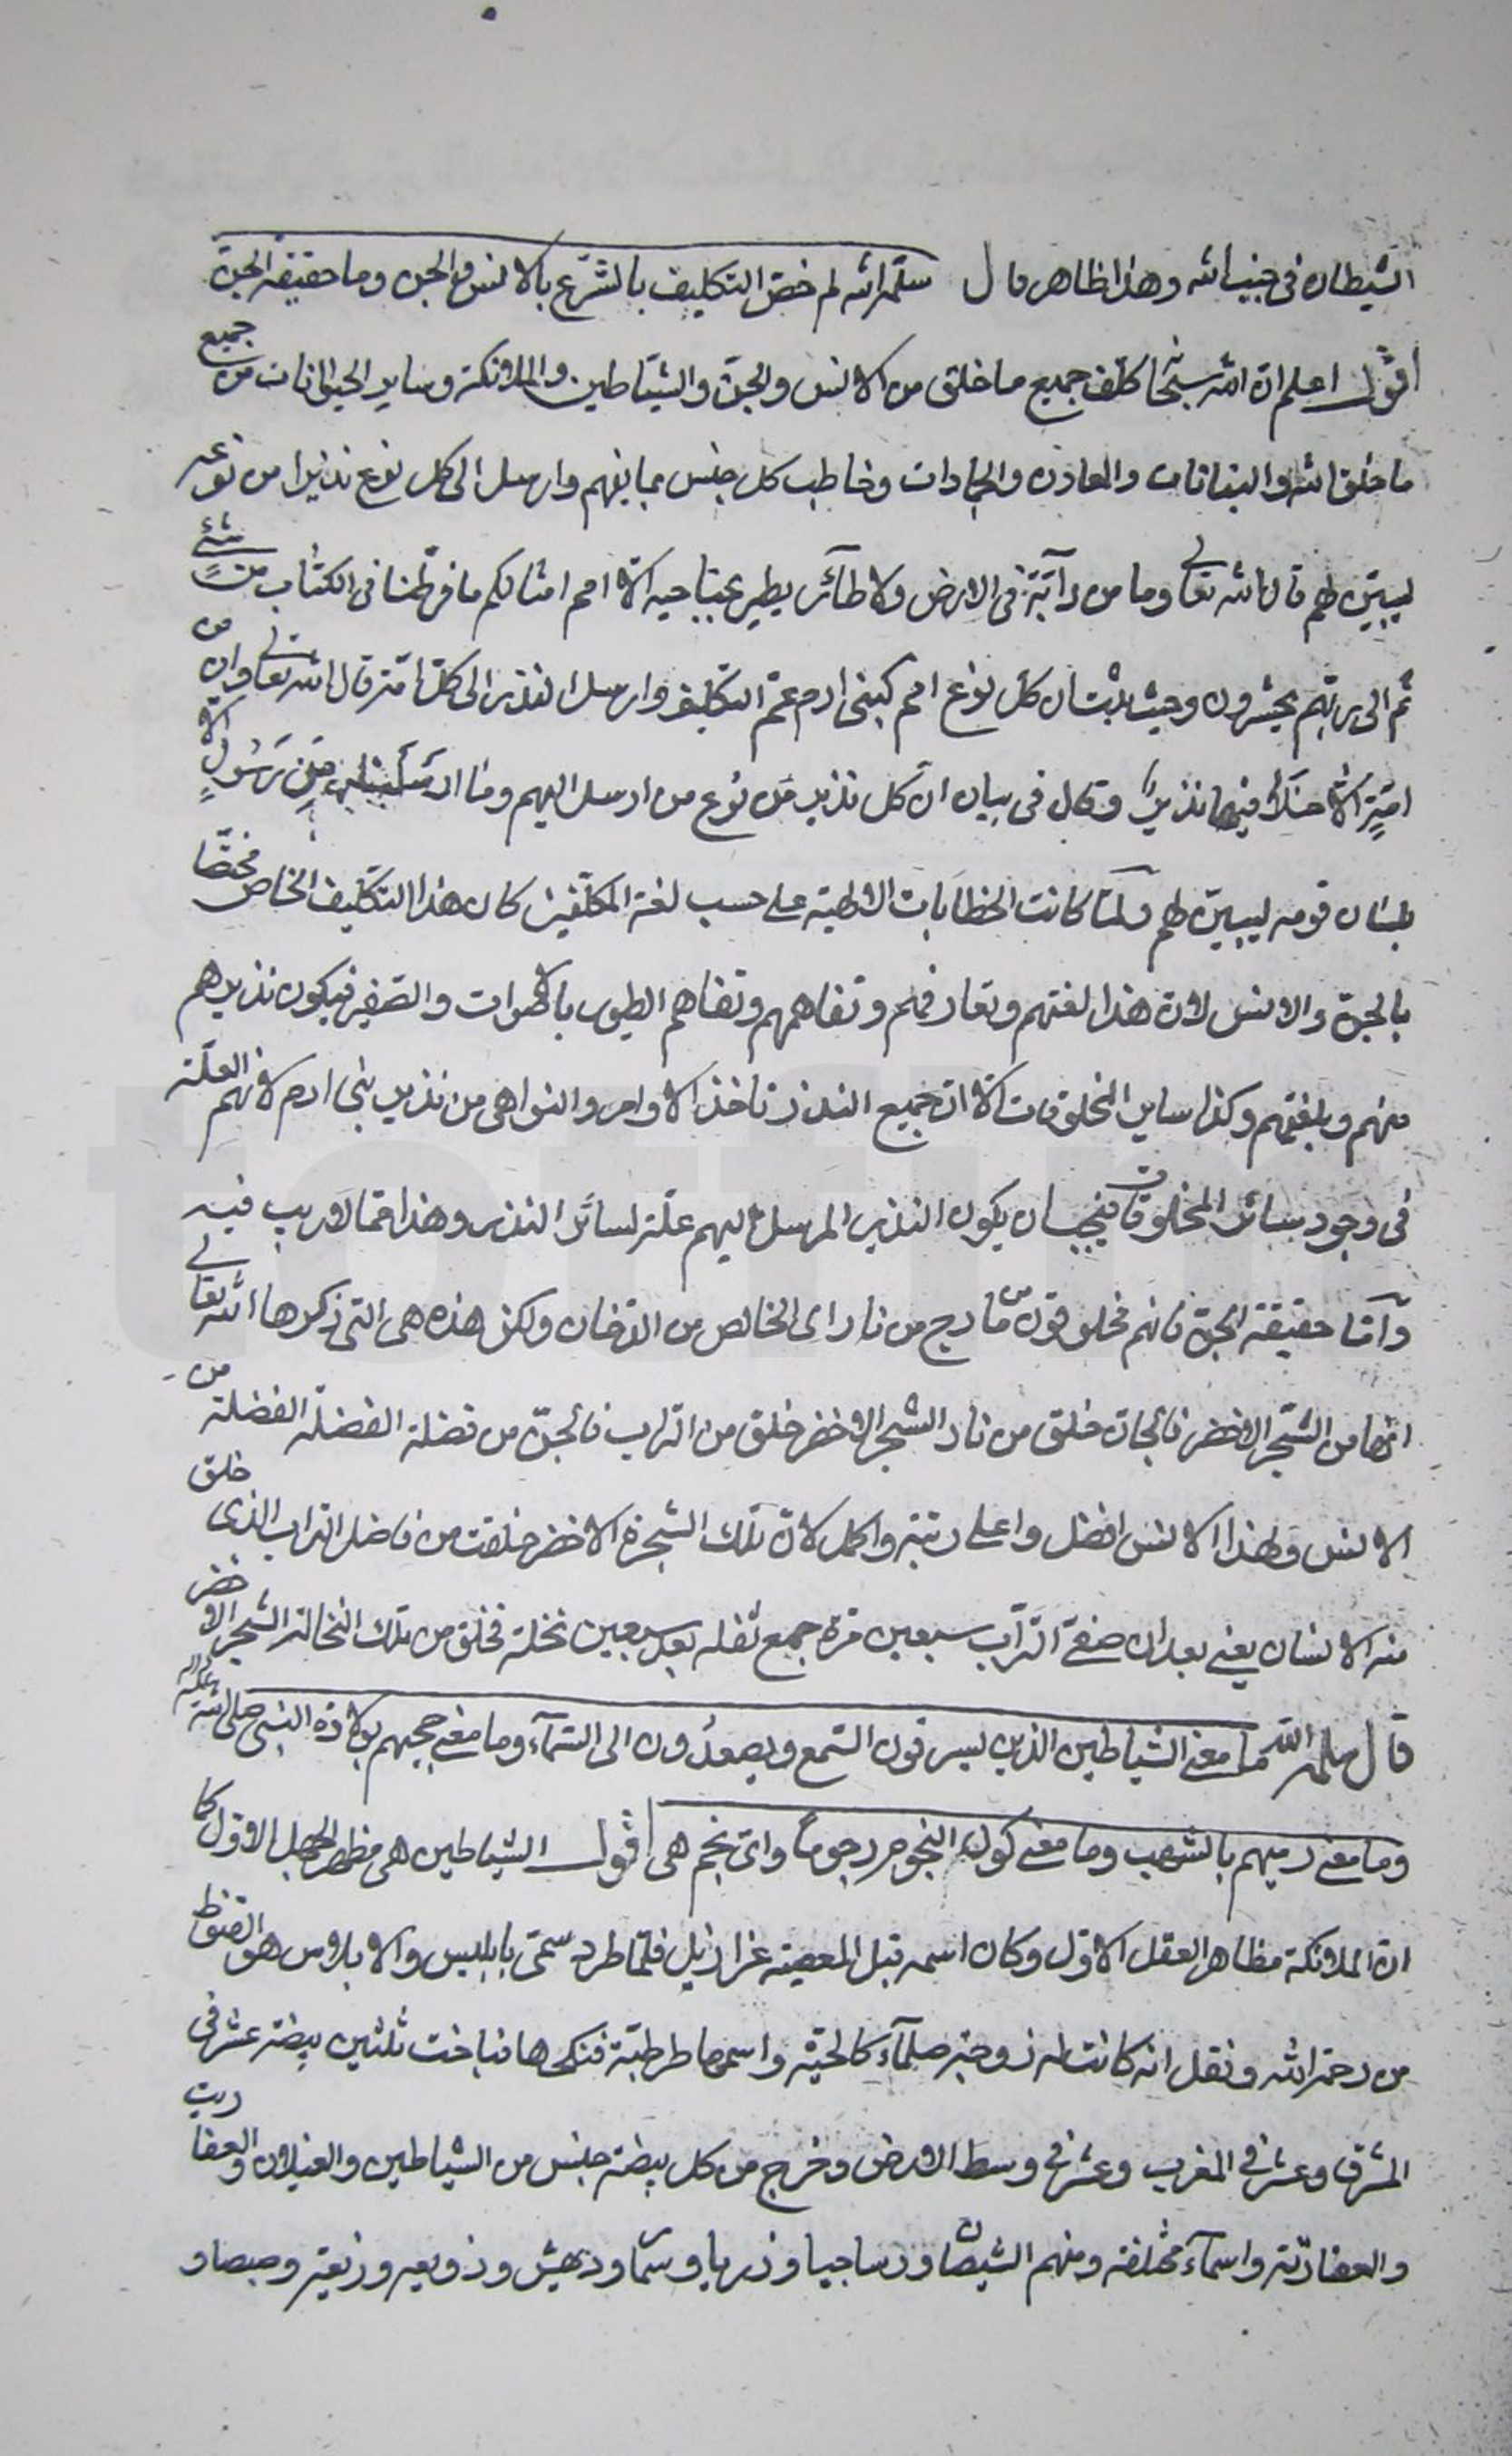 الشيطان فى جنب الله وهذا ظاهر قال سلمه الله لم خصّ التكليف بالشّرع بالانس والجن وما حقيقة الجنّ
اقول اعلم انّ الله سبحانه كلّف جميع ما خلق من الانس والجنّ والشيّاطين والملائكة وساير الحيوانات من جميع
ما خلق الله والنباتات والمعادن والجمادات وخاطب كل جنس بما يفهم وارسل الى كل نوع نذيرا من نوعه
ليبيّن لهم قال الله تعالى وما من دآبّة فى الارض ولا طآئر يطير بجناحيه الّا امم امثالكم ما فرّطنا فى الكتٰاب من شئ
ثم الى ربّهم يحشرون وحيث ثبت ان كل نوع امم كبنى ادم عمّ التكليف وارسل النذر الى كلّ امّة قال الله تعالى وان من
امّةٍ الّا خلا فيها نذيرٌ وقال فى بيان انّ كل نذير من نوع من ارسل اليهم ومٰا ارسَلنا من رَسُولٍ الّا
بلسٰان قومه ليبيّن لهم ولمّا كانت الخطابات الالهيّة على حسب لغة المكلّفين كان هذا التكليف الخاص مختصّا
بالجنّ والانس لانّ هذا لغتهم وتعارفهم وتفاهمهم وتفاهم الطيور بالاصوات والصّفير فيكون نذيرهم
منهم وبلغتهم وكذا ساير المخلوقات الّا انّ جميع النذر تاخذ الاوامر والنواهى من نذير بنى ادم لانهم العلّة
فى وجود سائر المخلوقات فيجب ان يكون النذير المرسل اليهم علّة لسائر النذر وهذا ممّا لا ريب فيه
وآمّا حقيقة الجنّ فانهم مخلوقون من مارج من نار اى الخالص من الدّخان ولكن هذه هى التى ذكرها الله تعالى
انّها من الشّجر الاخضر فالجانّ خلق من نار الشجر الاخضر خلق من التراب فالجنّ من فضلة الفضلة الفضلة من
الانس ولهذا الانس افضل واعلى رتبة واكمل لانّ تلك الشجرة الاخضر خلقت من فاضل التراب الذى خلق
منه الانسان يعنى بعد ان صفىّ التّراب سبعين مرّة جمع ثفله بعد سبعين نخلة فخلق من تلك النخالة الشجر الاخضر
قال سلمه الله ما معنى الشياطين الذين يسرقون السّمع ويصعدُون الى السّمآء وما معنى حجبهم بولادة النبى صلى الله عليه واله
وما معنى رميهم بالشهب وما معنى كون النجوم رجوماً واىّ نجم هى اقول الشياطين هى مظهر الجهل الاوّل كما
انّ الملائكة مظاهر العقل الاوّل وكان اسمه قبل المعصية عزازيل فلمّا طرد سمّى بابليس والابلاس هو القنوط
من رحمة الله ونقل انه كانت له زوجة صلمآء كالحيّة واسمها طرطبّة فنكحها فباضت ثلثين بيضة عشر فى
المشرق وعشر فى المغرب وعشر فى وسط الارض وخرج من كل بيضة جنس من الشياطين والغيلان والعفاريت
والعفارتة واسمآء مختلفة ومنهم و ودهيش